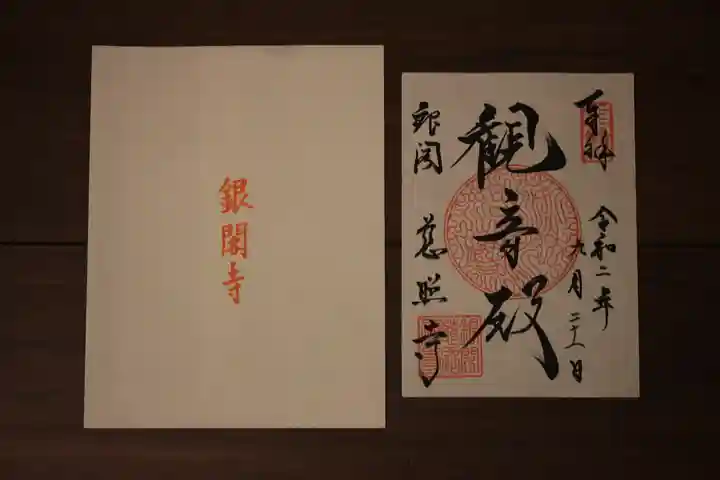 銀閣寺
奉拝
令和二年
九月二十一日
観音殿
銀閣 慈照寺